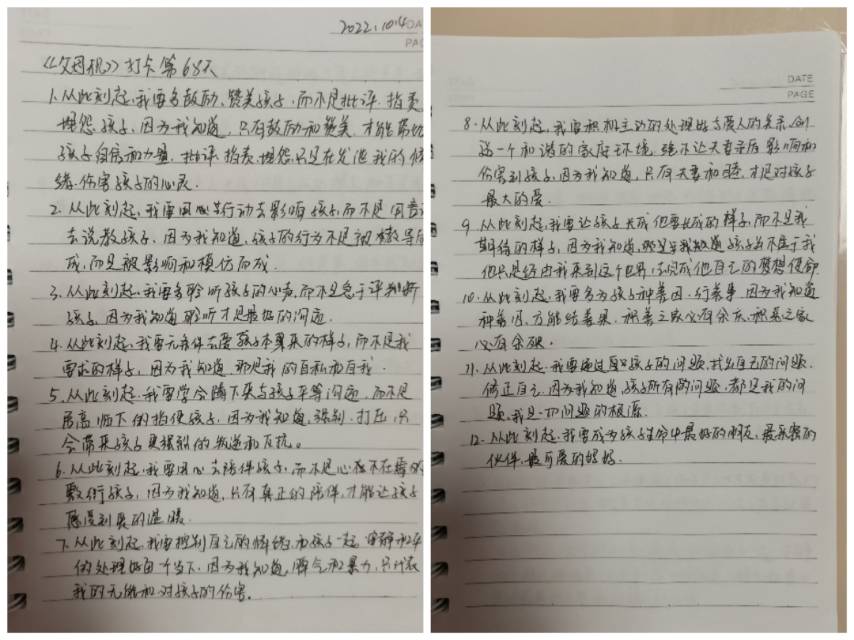 2022.10.4
DA
PAG
《父母规》打卡第68天
1.从此刻起,我要多鼓励、赞美孩子,而不是批评、指责
埋怨孩子,因为我知道,只有鼓励和赞美,才能带给
孩子自信和力量,批评、指责、埋怨只是在发泄我的情
绪,伤害孩子的心灵.
2.从此刻起,我要用心去行动去影响孩子,而不是用言语
去说教孩子,因为我知道,孩子的行为不是被教导而
成,而是被影响和模仿而成.
3.从此刻起,我要多聆听孩子的心声,而不是急于评判断
孩子,因为我知道聆听才是最好的沟通.
4.从此刻起,我要无条件去爱孩子本来的样子,而不是我
要求的样子,因为我知道,那是我的自私和自我.
5.从此刻起,我要学会蹲下来与孩子平等沟通,而不是
居高临下的指使孩子,因为我知道,强制、打压,只
会带来孩子更强烈的叛逆和反抗。
6.从此刻起,我要用心去陪伴孩子,而不是心在不在焉的
敷衍孩子,因为我知道,只有真正的陪伴,才能让孩子
感受到爱的温暖.
7.从此刻起,我要控制自己的情绪,和孩子一起,安静和平
的处理好每一个当下,因为我知道,脾气和暴力,只代表
我的无能和对孩子的伤害.
DATE
PAGE
8.从此刻起,我要积极主动的处理好与爱人的关系,创
造一个和谐的家庭环境,绝不让夫妻矛盾影响和
伤害到孩子,因为我知道,只有夫妻和睦,才是对孩子
最大的爱.
9.从此刻起,我要让孩子长成他要长成的样子,而不是我
期待的样子,因为我知道,孩子并不属于我
他只是经由我来到这个世界,去完成他自己的梦想使命
10.从此刻起,我要多为孩子种善因,行善事,因为我知道
种善因,方能结善果,积善之家必有余庆,积恶之家
必有余殃.
11.从此刻起,我要通过孩子的问题,找出自己的问题,
修正自己,因为我知道,孩子所有的问题,都是我的问
题,我是一切问题的根源.
12.从此刻起,我要成为孩子生命中最好的朋友,最亲密的
伙伴,最可爱的妈妈.